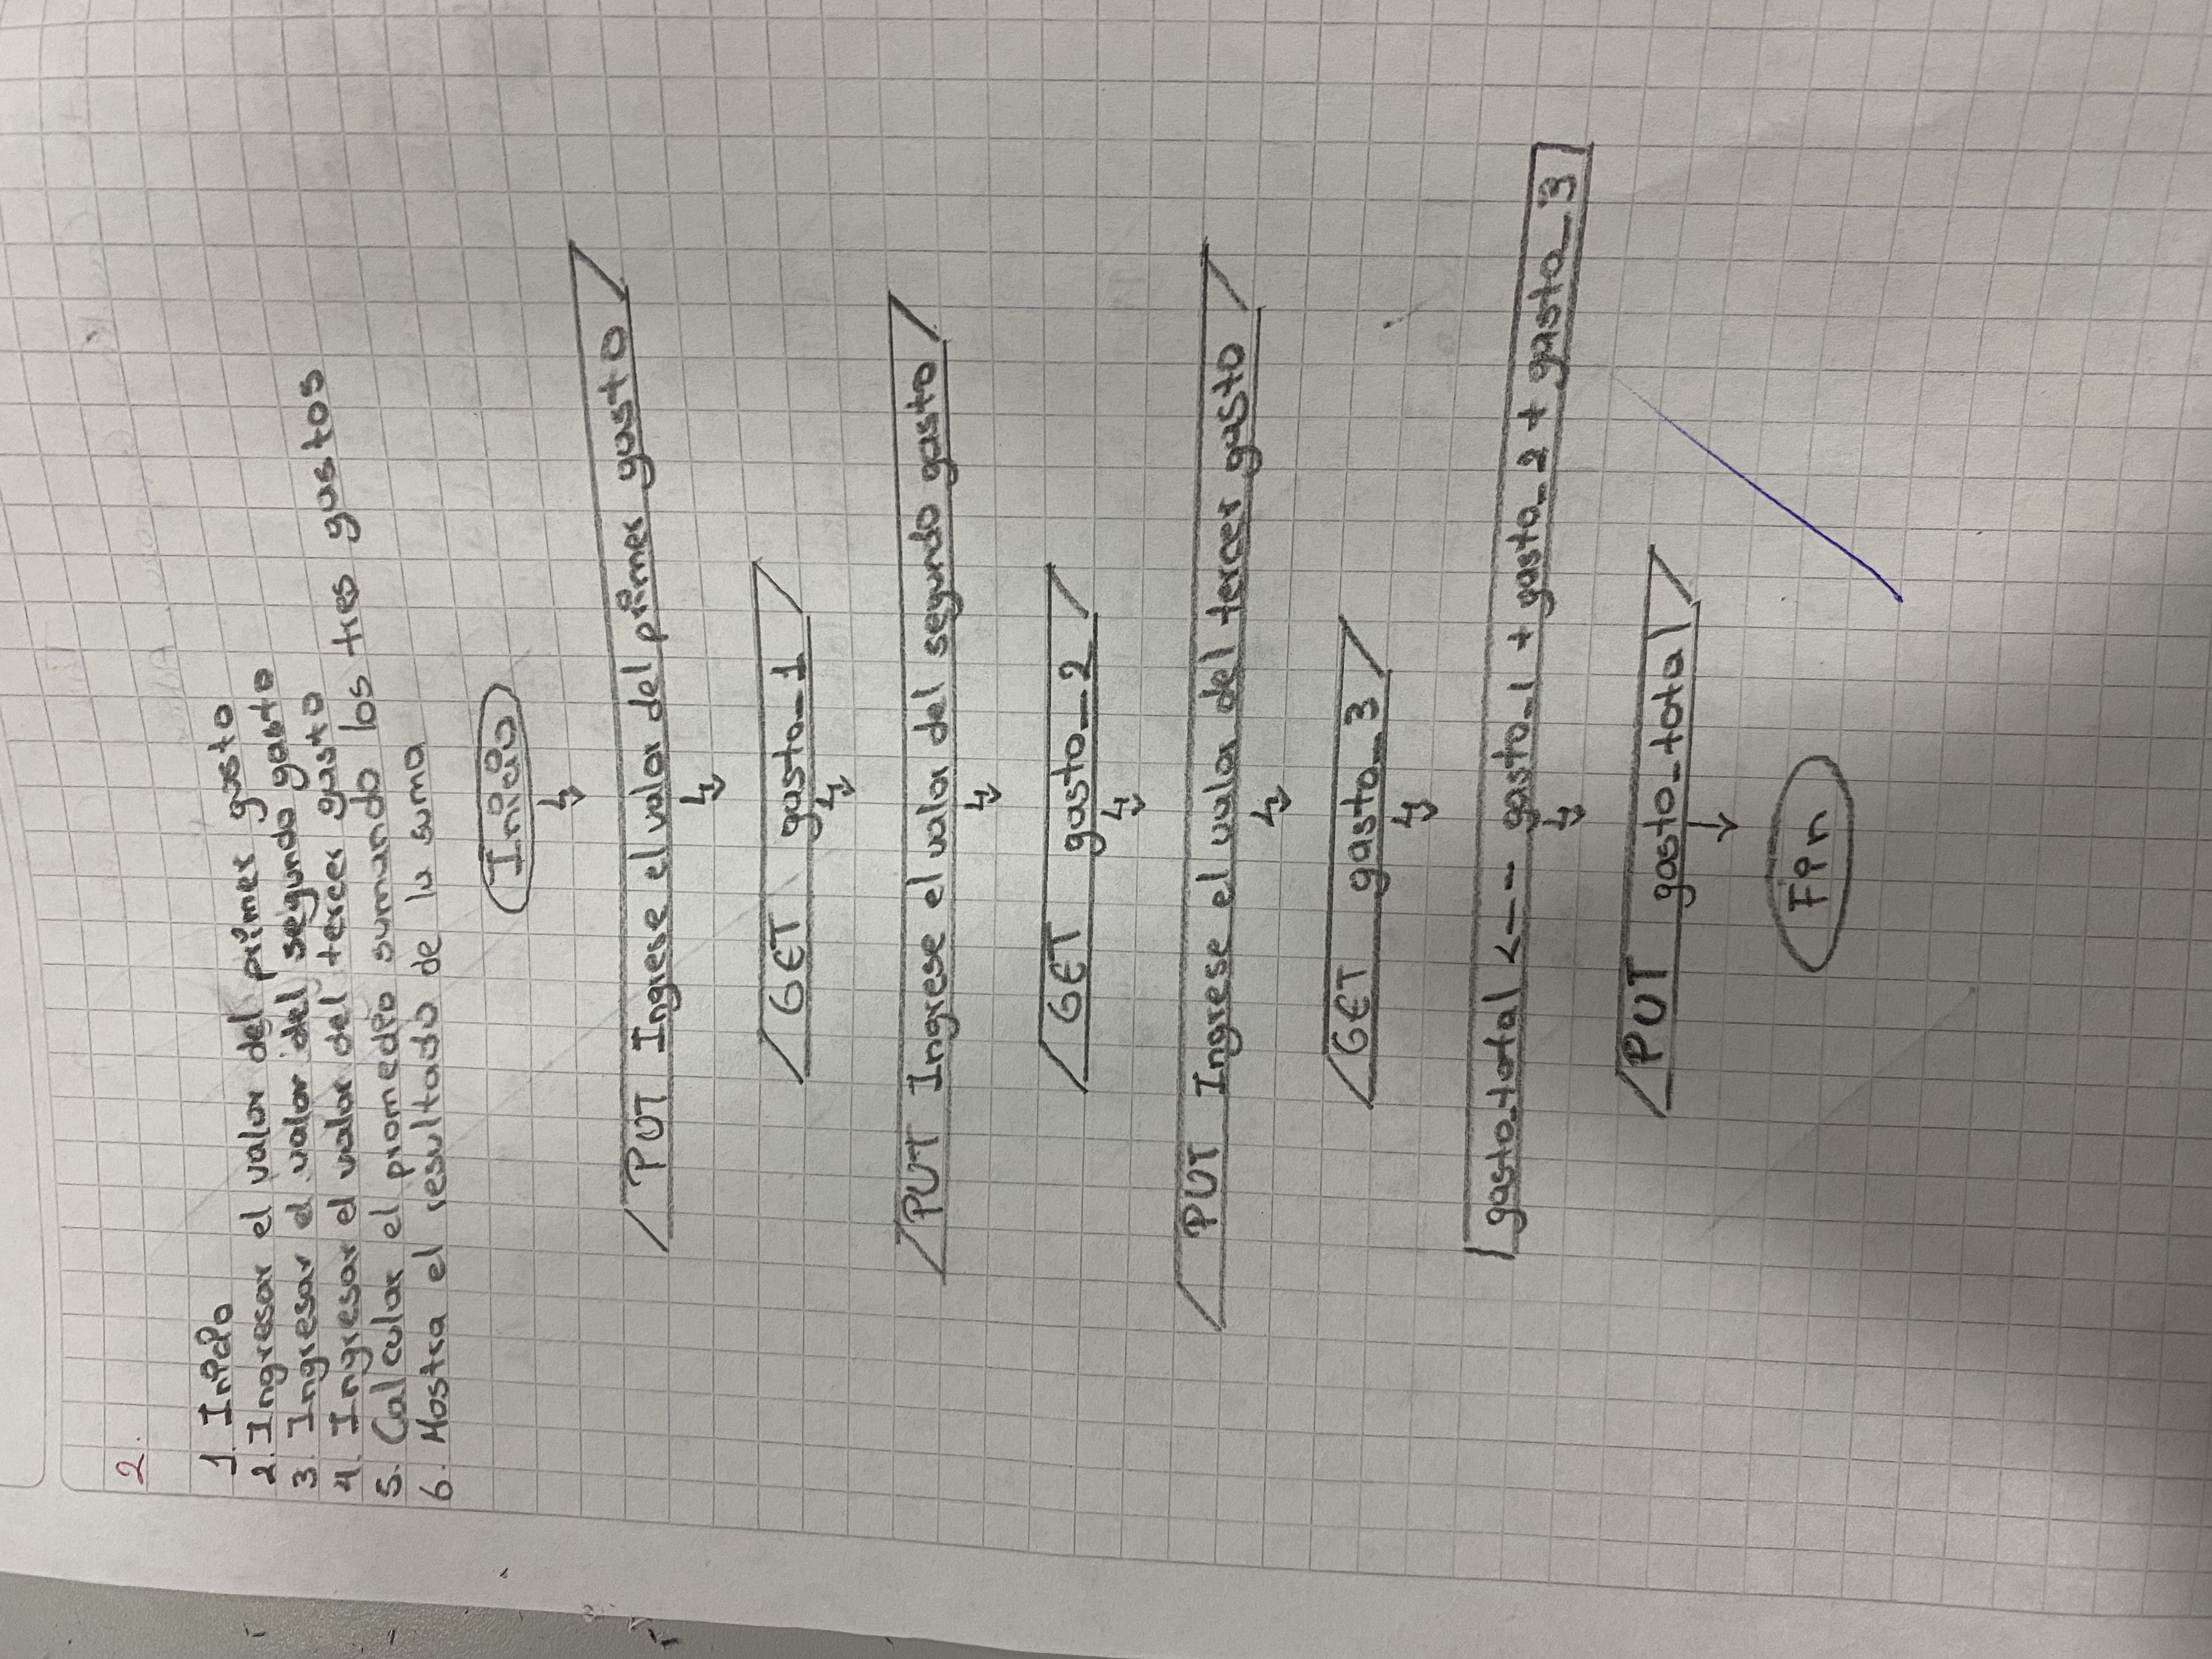 2.
1. Inicio
2. Ingresar el valor del primer gasto
3. Ingresar el valor del segundo gasto
4. Ingresar el valor del tercer gasto
5. Calcular el promedio sumando los tres gastos
6. Mostra el resultado de la suma
Inicio
PUT Ingrese el valor del primer gasto
GET gasto_1
PUT Ingrese el valor del segundo gasto
GET gasto_2
PUT Ingrese el valor del tercer gasto
GET gasto_3
gasto_total <-- gasto_1 + gasto_2 + gasto_3
PUT gasto_total
Fin